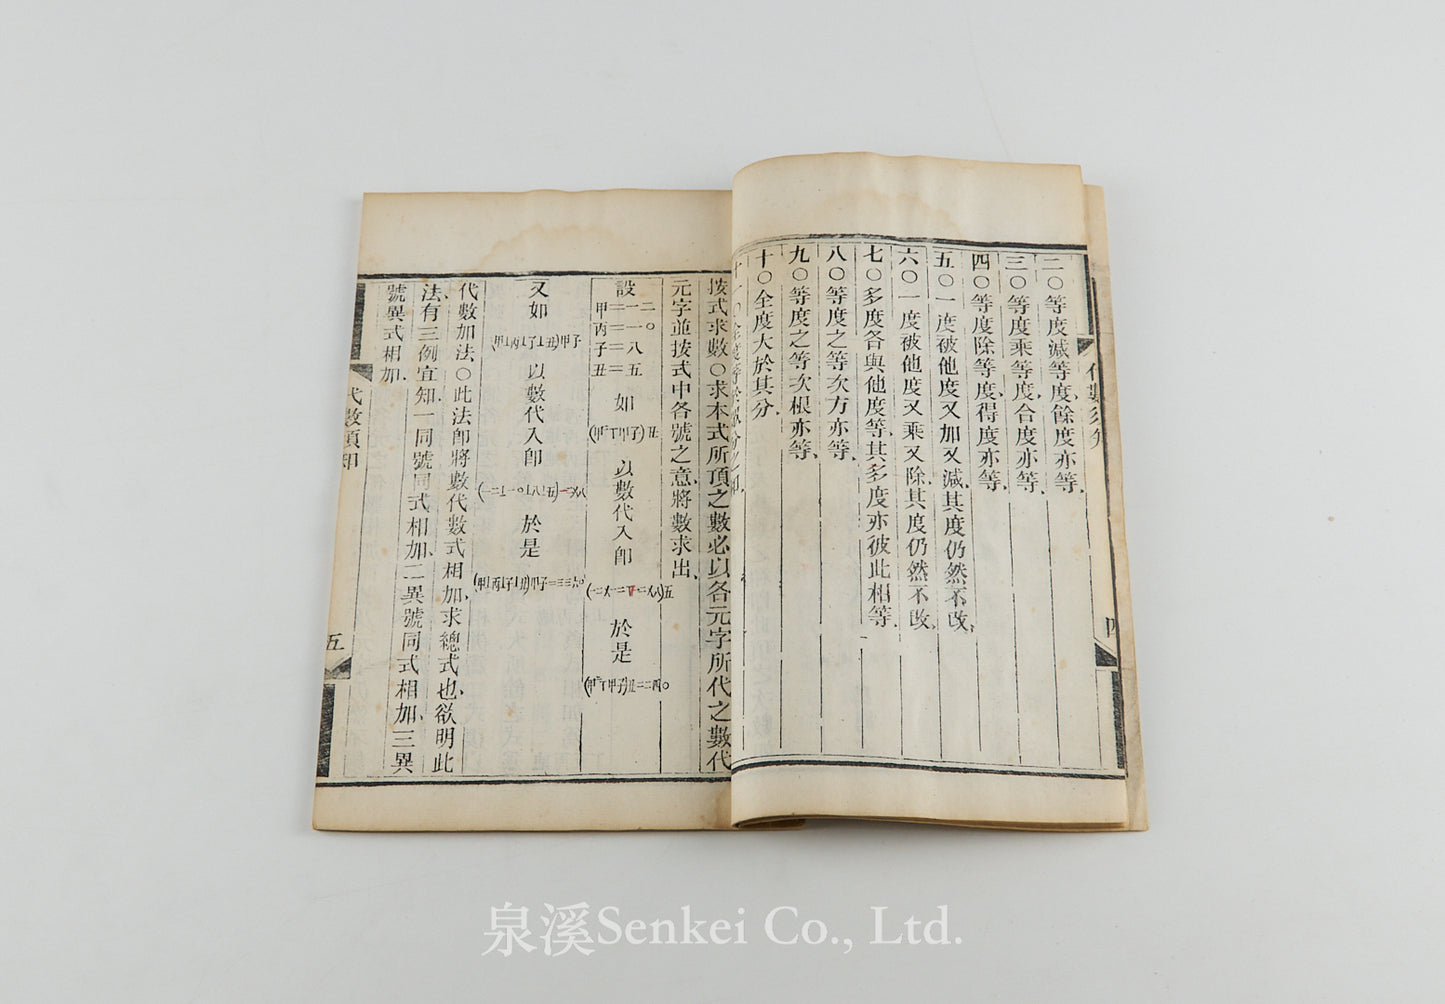 二〇等度減等度餘度亦等
三〇等度乘等度合度亦等
四〇等度除等度得度亦等
五〇一度被他度又加又減其度仍然不改
六〇一度被他度又乘又除其度仍然不改
七〇多度各與他度等其多度亦彼此相等
八〇等度之等次方亦等
九〇等度之等次根亦等
十〇全度大於其分
四
按式求數〇求本式所頂之數必以各元字所代之數代
元字並按式中各號之意將數求出
設
甲二一二
丙二一〇
子二八
丑二五
如
以數代入卽
於是
又如
以數代入卽
於是
代數加法〇此法卽將數代數式相加求總式也欲明此
法有三例宜知一同號同式相加二異號同式相加三異
號異式相加
五
泉溪Senkei Co., Ltd.